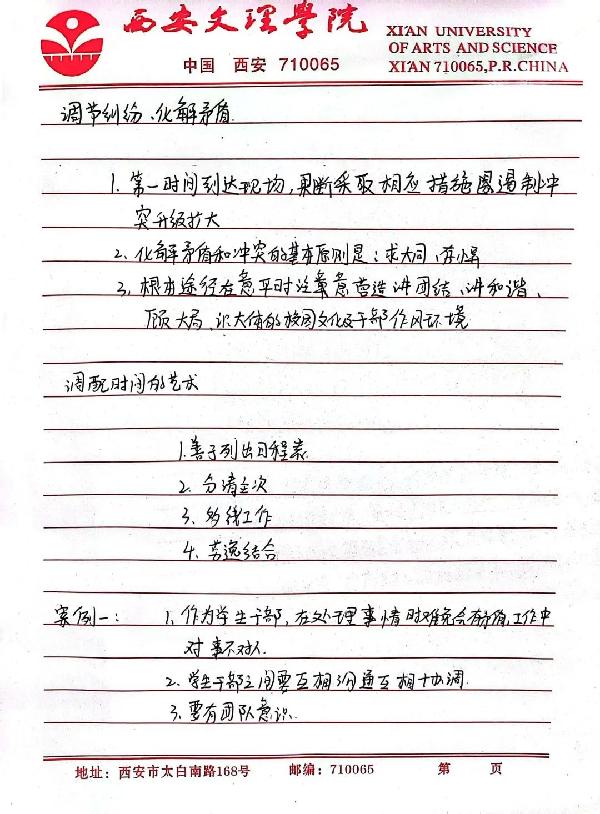 西安文理學院
XI'AN UNIVERSITY
OF ARTS AND SCIENCE
中国 西安 710065
XI'AN 710065,P.R.CHINA
调节纠纷、化解矛盾.
1. 第一时间到达现场,果断采取相应措施遏制冲
突升级扩大
2、化解矛盾和冲突的基本原则是:求大同、存小异
3、根本途径在平时注意营造讲团结、讲和谐、
顾大局、识大体的校园文化及干部作风环境
调配时间的艺术
1.善于列出日程表
2. 分清主次
3、多线工作
4. 劳逸结合
案例一: 1、作为学生干部,在处理事情时难免会有矛盾,工作中
对事不对人.
2、学生干部之间要互相沟通互相协调.
3.要有团队意识.
地址:西安市太白南路168号 邮编:710065 第 页